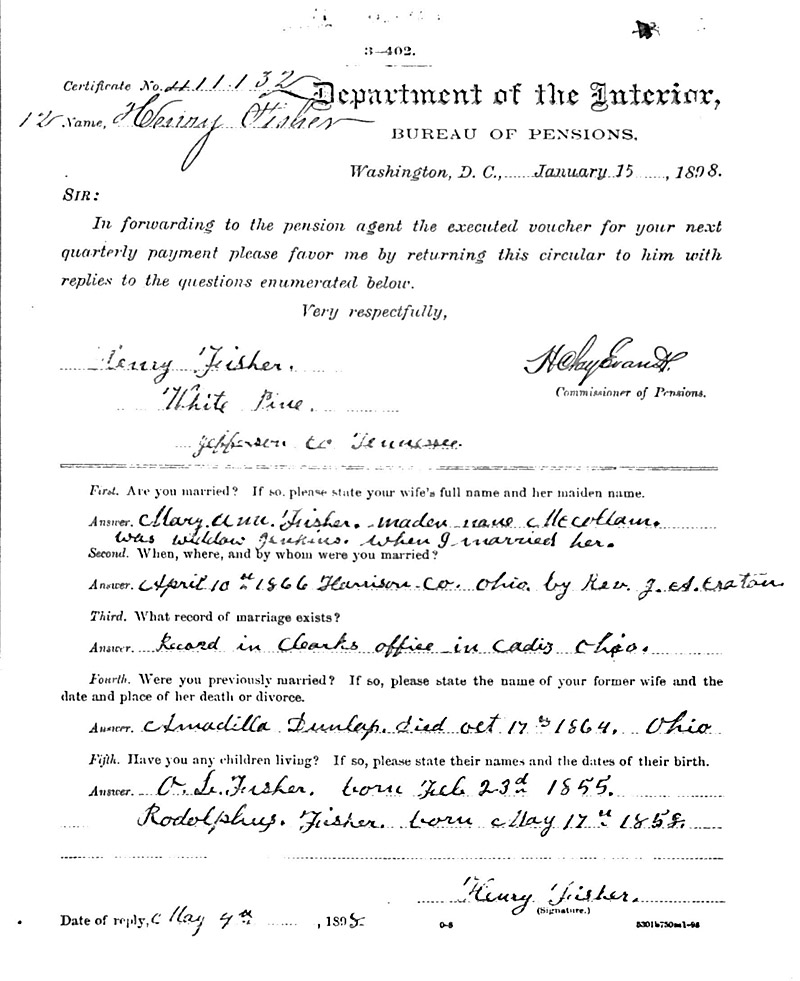 3-402.
Certificate No. 411.132
Department of the Interior,
12 Name, Henry Fisher
BUREAU OF PENSIONS,
Washington, D. C., January 15, 1898.
SIR:
In forwarding to the pension agent the executed voucher for your next
quarterly payment please favor me by returning this circular to him with
replies to the questions enumerated below.
Very respectfully,
Henry Fisher.
H Clay Evans
White Pine.
Commissioner of Pensions.
Jefferson co Tennessee.
First. Are you married? If so, please state your wife's full name and her maiden name.
Answer. Mary Ann. Fisher. maden name McCollam.
was widdow Jenkins. when I married her.
Second. When, where, and by whom were you married?
Answer. April 10th 1866 Harrison Co. Ohio. by Rev. J. A. Eraton
Third. What record of marriage exists?
Answer. Record in Clearks office in Cadiz Ohio.
Fourth. Were you previously married? If so, please state the name of your former wife and the
date and place of her death or divorce.
Answer. Amadilla Dunlap. died oct 17th 1864. Ohio
Fifth. Have you any children living? If so, please state their names and the dates of their birth.
Answer. O. L. Fisher. born Feb 23d 1855.
Rodolphus. Fisher. born May 17th 1858.
Henry Fisher.
(Signature.)
Date of reply, May 4th, 1898
0-8
5301b750m1-98